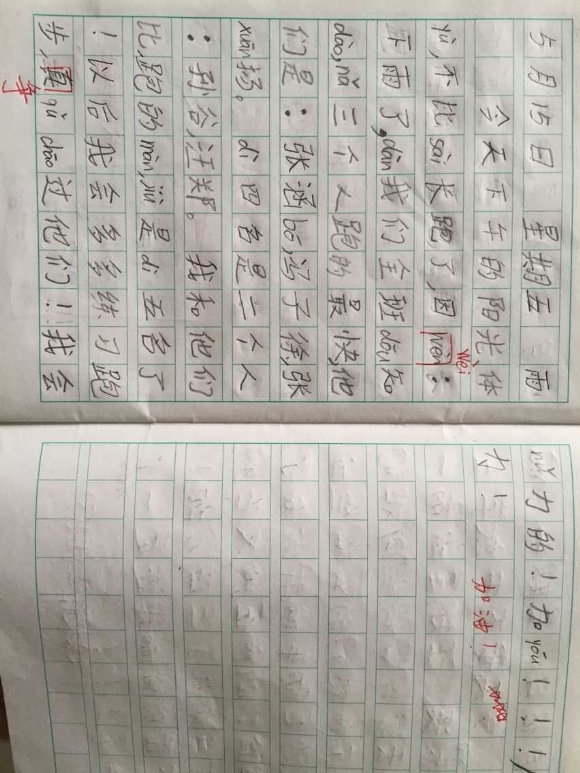 5月15日 星期五 雨
今天下午的阳光体
yù,不比sài长跑了,因wèn:
wèi
下雨了,dàn我们全班dōu知
dào,nǎ三个人跑的最快,他
们是:张涵bó,冯子徐,张
xuān扬。 dì四名是二个人
:孙谷,汪邦。 我和他们
比,跑的màn,jiù是dì五名了
!以后我会多多练习跑
步,真qǔ chāo过他们!!我会
争
nǔ力的!加yóu!!!
力!
加油!